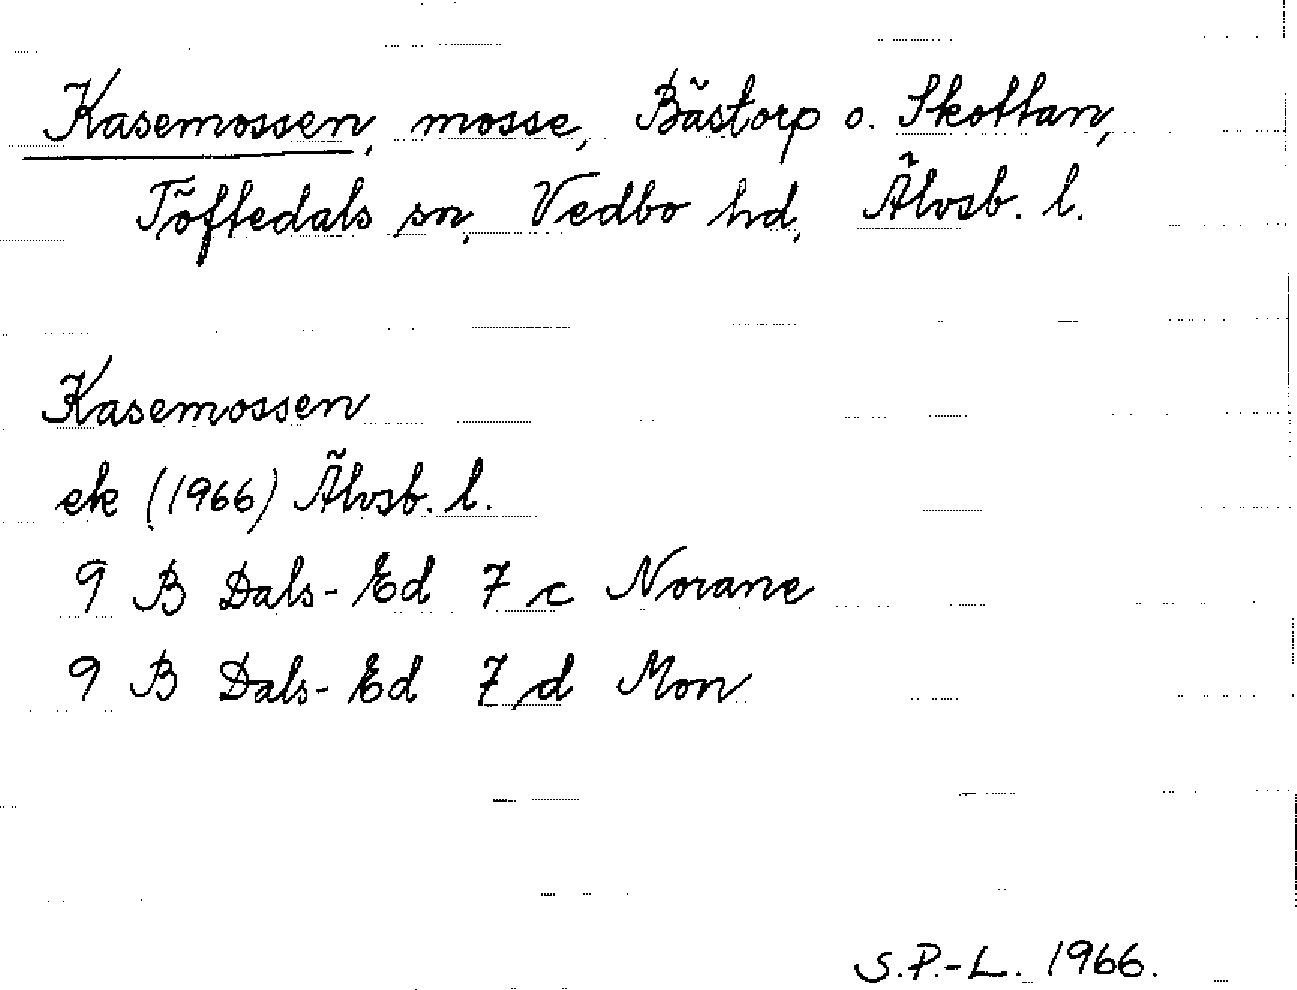 Kasemossen, mosse, Bästorp o. Skottan,
Töftedals sn, Vedbo hd, Älvsb. l.
Kasemossen
ek (1966) Älvsb. l.
9 B Dals-Ed 7 c Norane
9 B Dals-Ed 7 d Mon
S.P.-L. 1966.